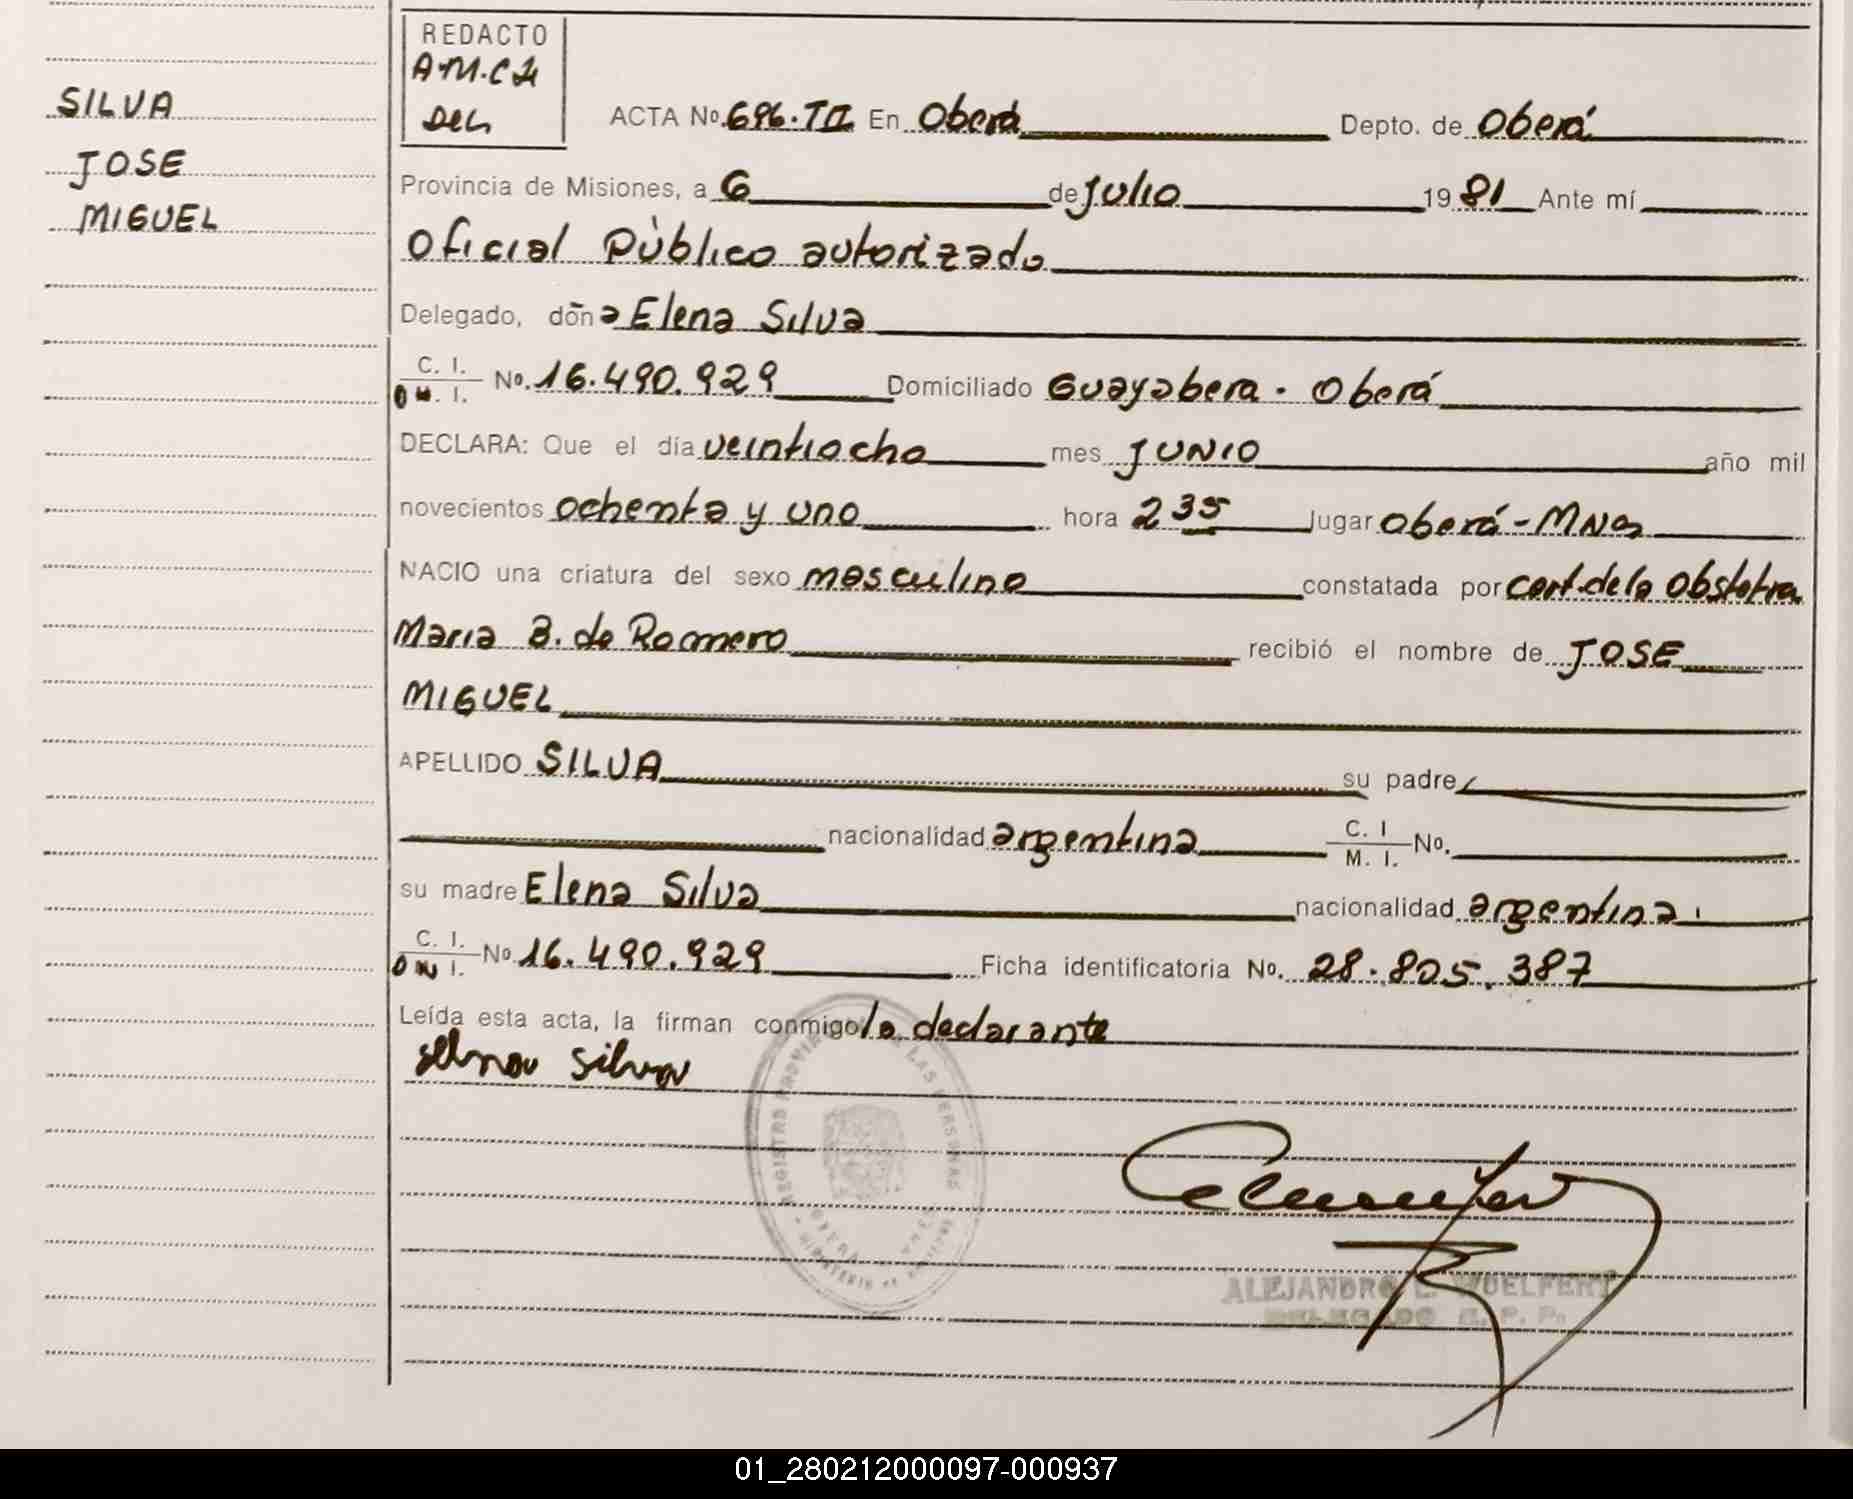 SILVA
JOSE
MIGUEL
REDACTO
A.M.CH
DEL
ACTA No. 696.TII En Oberá Depto. de Oberá
Provincia de Misiones, a 6 de Julio 1981 Ante mí
Oficial Público autorizado
Delegado, doña Elena Silva
C. I.
D . I. No. 16.490.929 Domiciliado Guayabera - Oberá
DECLARA: Que el día veintiocho mes JUNIO año mil
novecientos ochenta y uno hora 2 35 lugar Oberá-MNes
NACIO una criatura del sexo masculino constatada por cert. de la Obstetra
Maria B. de Romero recibió el nombre de JOSE
MIGUEL
APELLIDO SILVA su padre
nacionalidad argentina C. I
M. I. No.
su madre Elena Silva nacionalidad argentina
C. I.
D N I. No 16.490.929 Ficha identificatoria No. 28.805.387
Leída esta acta, la firman conmigo la declarante
Elena Silva
REGISTRO PROVINCIAL DE LAS PERSONAS
OBERA
ALEJANDRO E. WUELFERT
DELEGADO R. P. P.
01_280212000097-000937